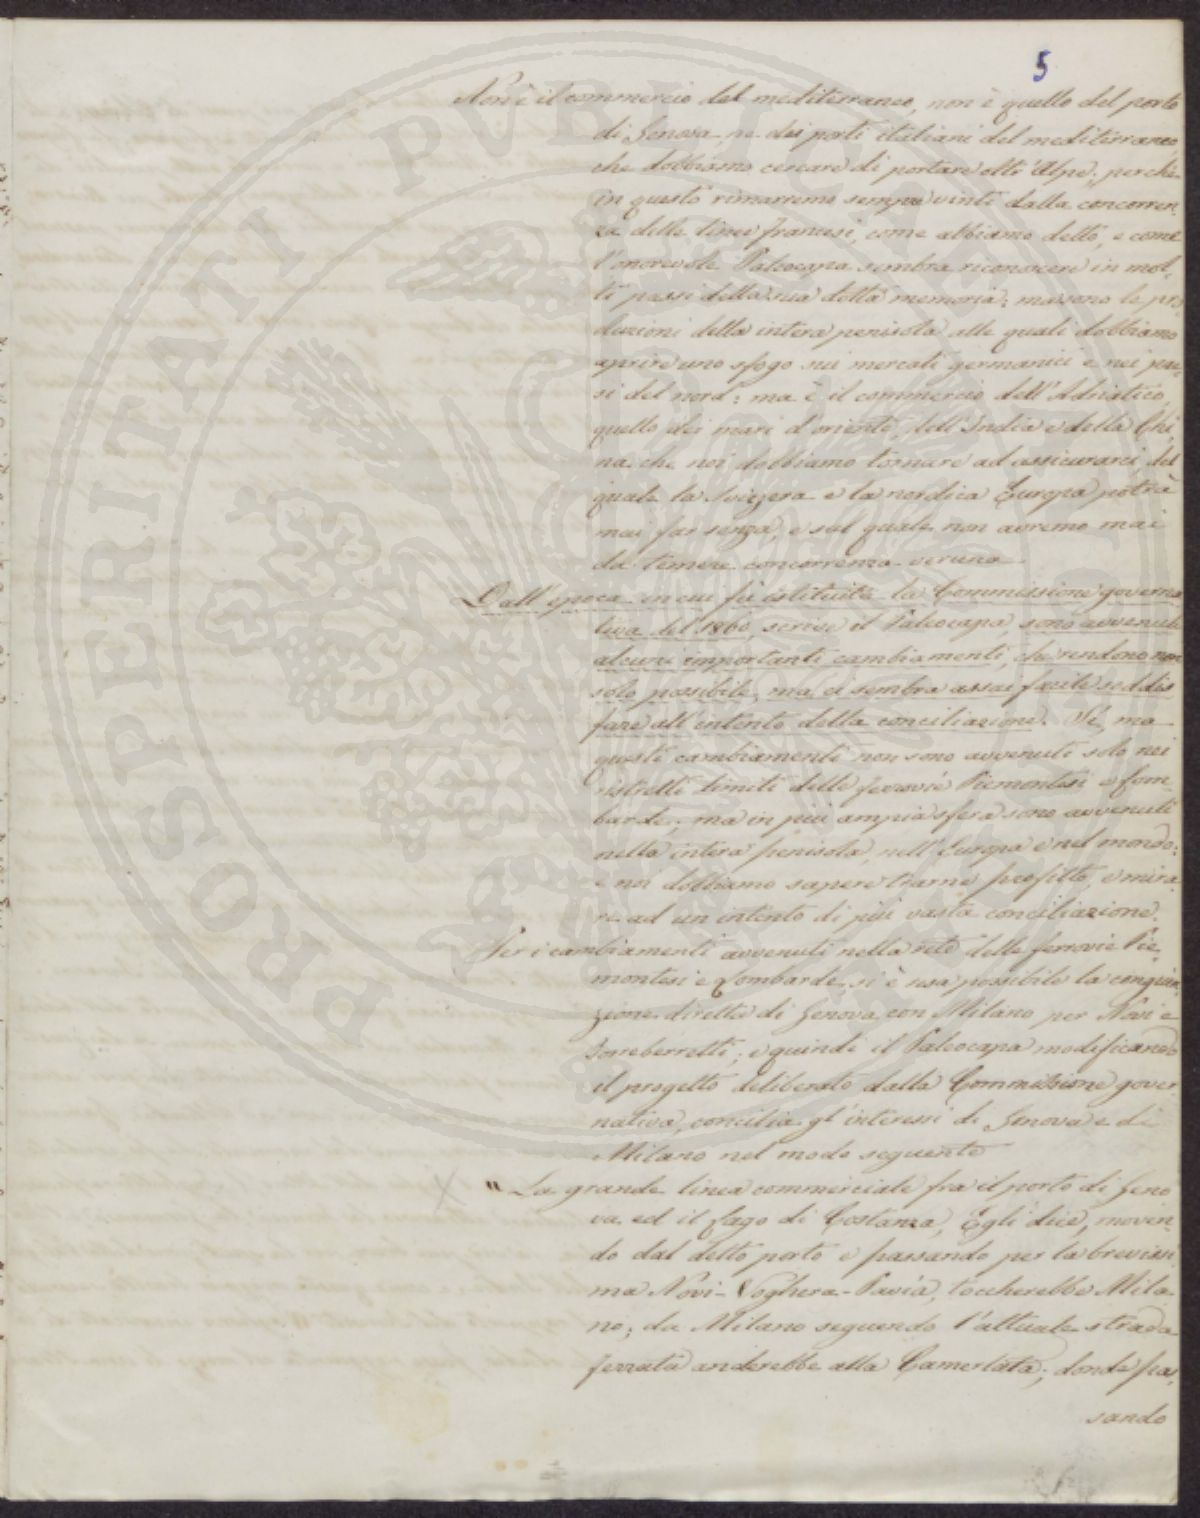 5
Non è il commercio del mediterraneo, non è quello del porto
di Genova, ne dei porti italiani del mediterraneo
che dobbiamo cercare di portare oltr'Alpe; perchè
in questo rimarremo sempre vinti dalla concorren-
za delle linee francesi, come abbiamo detto, e come
l'onorevole Paleocapa sembra riconoscere in mol-
ti passi della sua dotta memoria; ma sono le pro-
duzioni della intera penisola alle quali dobbiamo
aprire uno sfogo sui mercati germanici e nei pae-
si del nord: ma è il commercio dell'Adriatico,
quello dei mari d'oriente, dell'India e della Chi-
na che noi dobbiamo tornare ad assicurarci, del
quale la Svizzera e la nordica Europa potrà
mai far senza, e sul quale non avremo mai
da temere concorrenza veruna.
Dall'epoca in cui fù istituita la Commissione governa-
tiva del 1860, scrive il Paleocapa, sono avvenuti
alcuni importanti cambiamenti, che rendono non
solo possibile, ma ci sembra assai facile soddis
fare all'intento della conciliazione. Sì, ma
questi cambiamenti non sono avvenuti solo nei
ristretti limiti delle ferrovie Piemontesi e Lom-
barde; ma in più ampia sfera sono avvenuti
nella intera penisola, nell'Europa e nel mondo;
e noi dobbiamo sapere trarne profitto, e mira-
re ad un intento di più vasta conciliazione.
Per i cambiamenti avvenuti nella rete delle ferrovie Pie-
montesi e Lombarde, si è resa possibile la congiun-
zione diretta di Genova con Milano per Novi e
Torreberretti; e quindi il Paleocapa modificando
il progetto deliberato dalla Commissione gover
nativa, concilia gl'interessi di Genova e di
Milano nel modo seguente
" La grande linea commerciale fra il porto di Geno
va ed il Lago di Costanza, Egli dice, moven-
do dal detto porto e passando per la brevissi-
ma Novi-Voghera-Pavia, toccherebbe Mila-
no; da Milano seguendo l'attuale strada
ferrata anderebbe alla Camerlata; donde pas-
sando
PROSPERITATI PUBLICAE